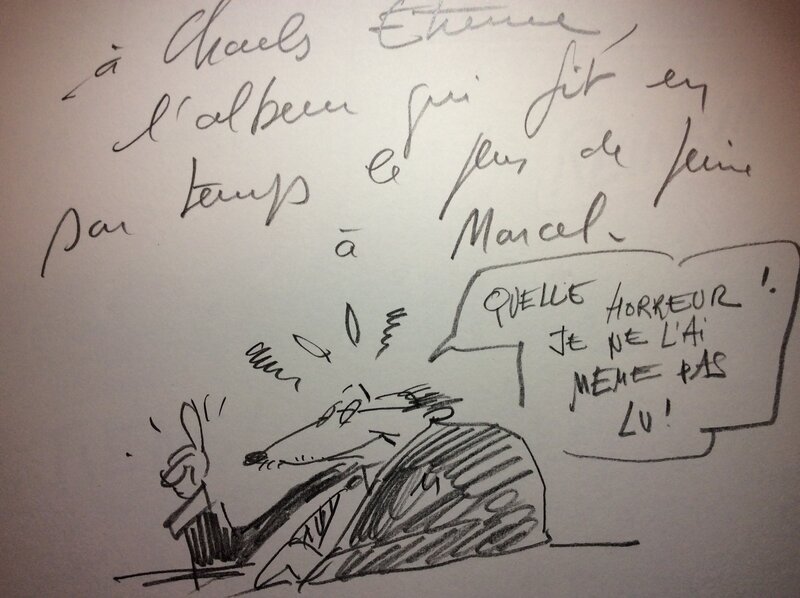 à Charles Etienne,
l'album qui fit en
son temps le plus de peine
à Marcel.
QUELLE HORREUR !
JE NE L'AI
MEME PAS
LU !